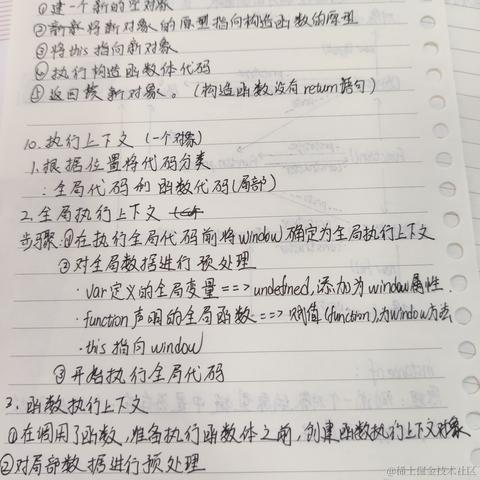 ①建一个新的空对象
②新对象的原型指向构造函数的原型
③将this指向新对象
④执行构造函数体代码
⑤返回该新对象。（构造函数没有return语句）
10.执行上下文（一个对象）
1.根据位置将代码分类
：全局代码和函数代码（局部）
2.全局执行上下文
步骤：①在执行全局代码前将window确定为全局执行上下文
②对全局数据进行预处理
·var定义的全局变量==>undefined,添加为window属性.
·function声明的全局函数==>赋值(function),为window方法
·this指向window
③开始执行全局代码
3.函数执行上下文
①在调用了函数，准备执行函数体之前，创建函数执行上下文对象
②对局部数据进行预处理
@稀土掘金技术社区